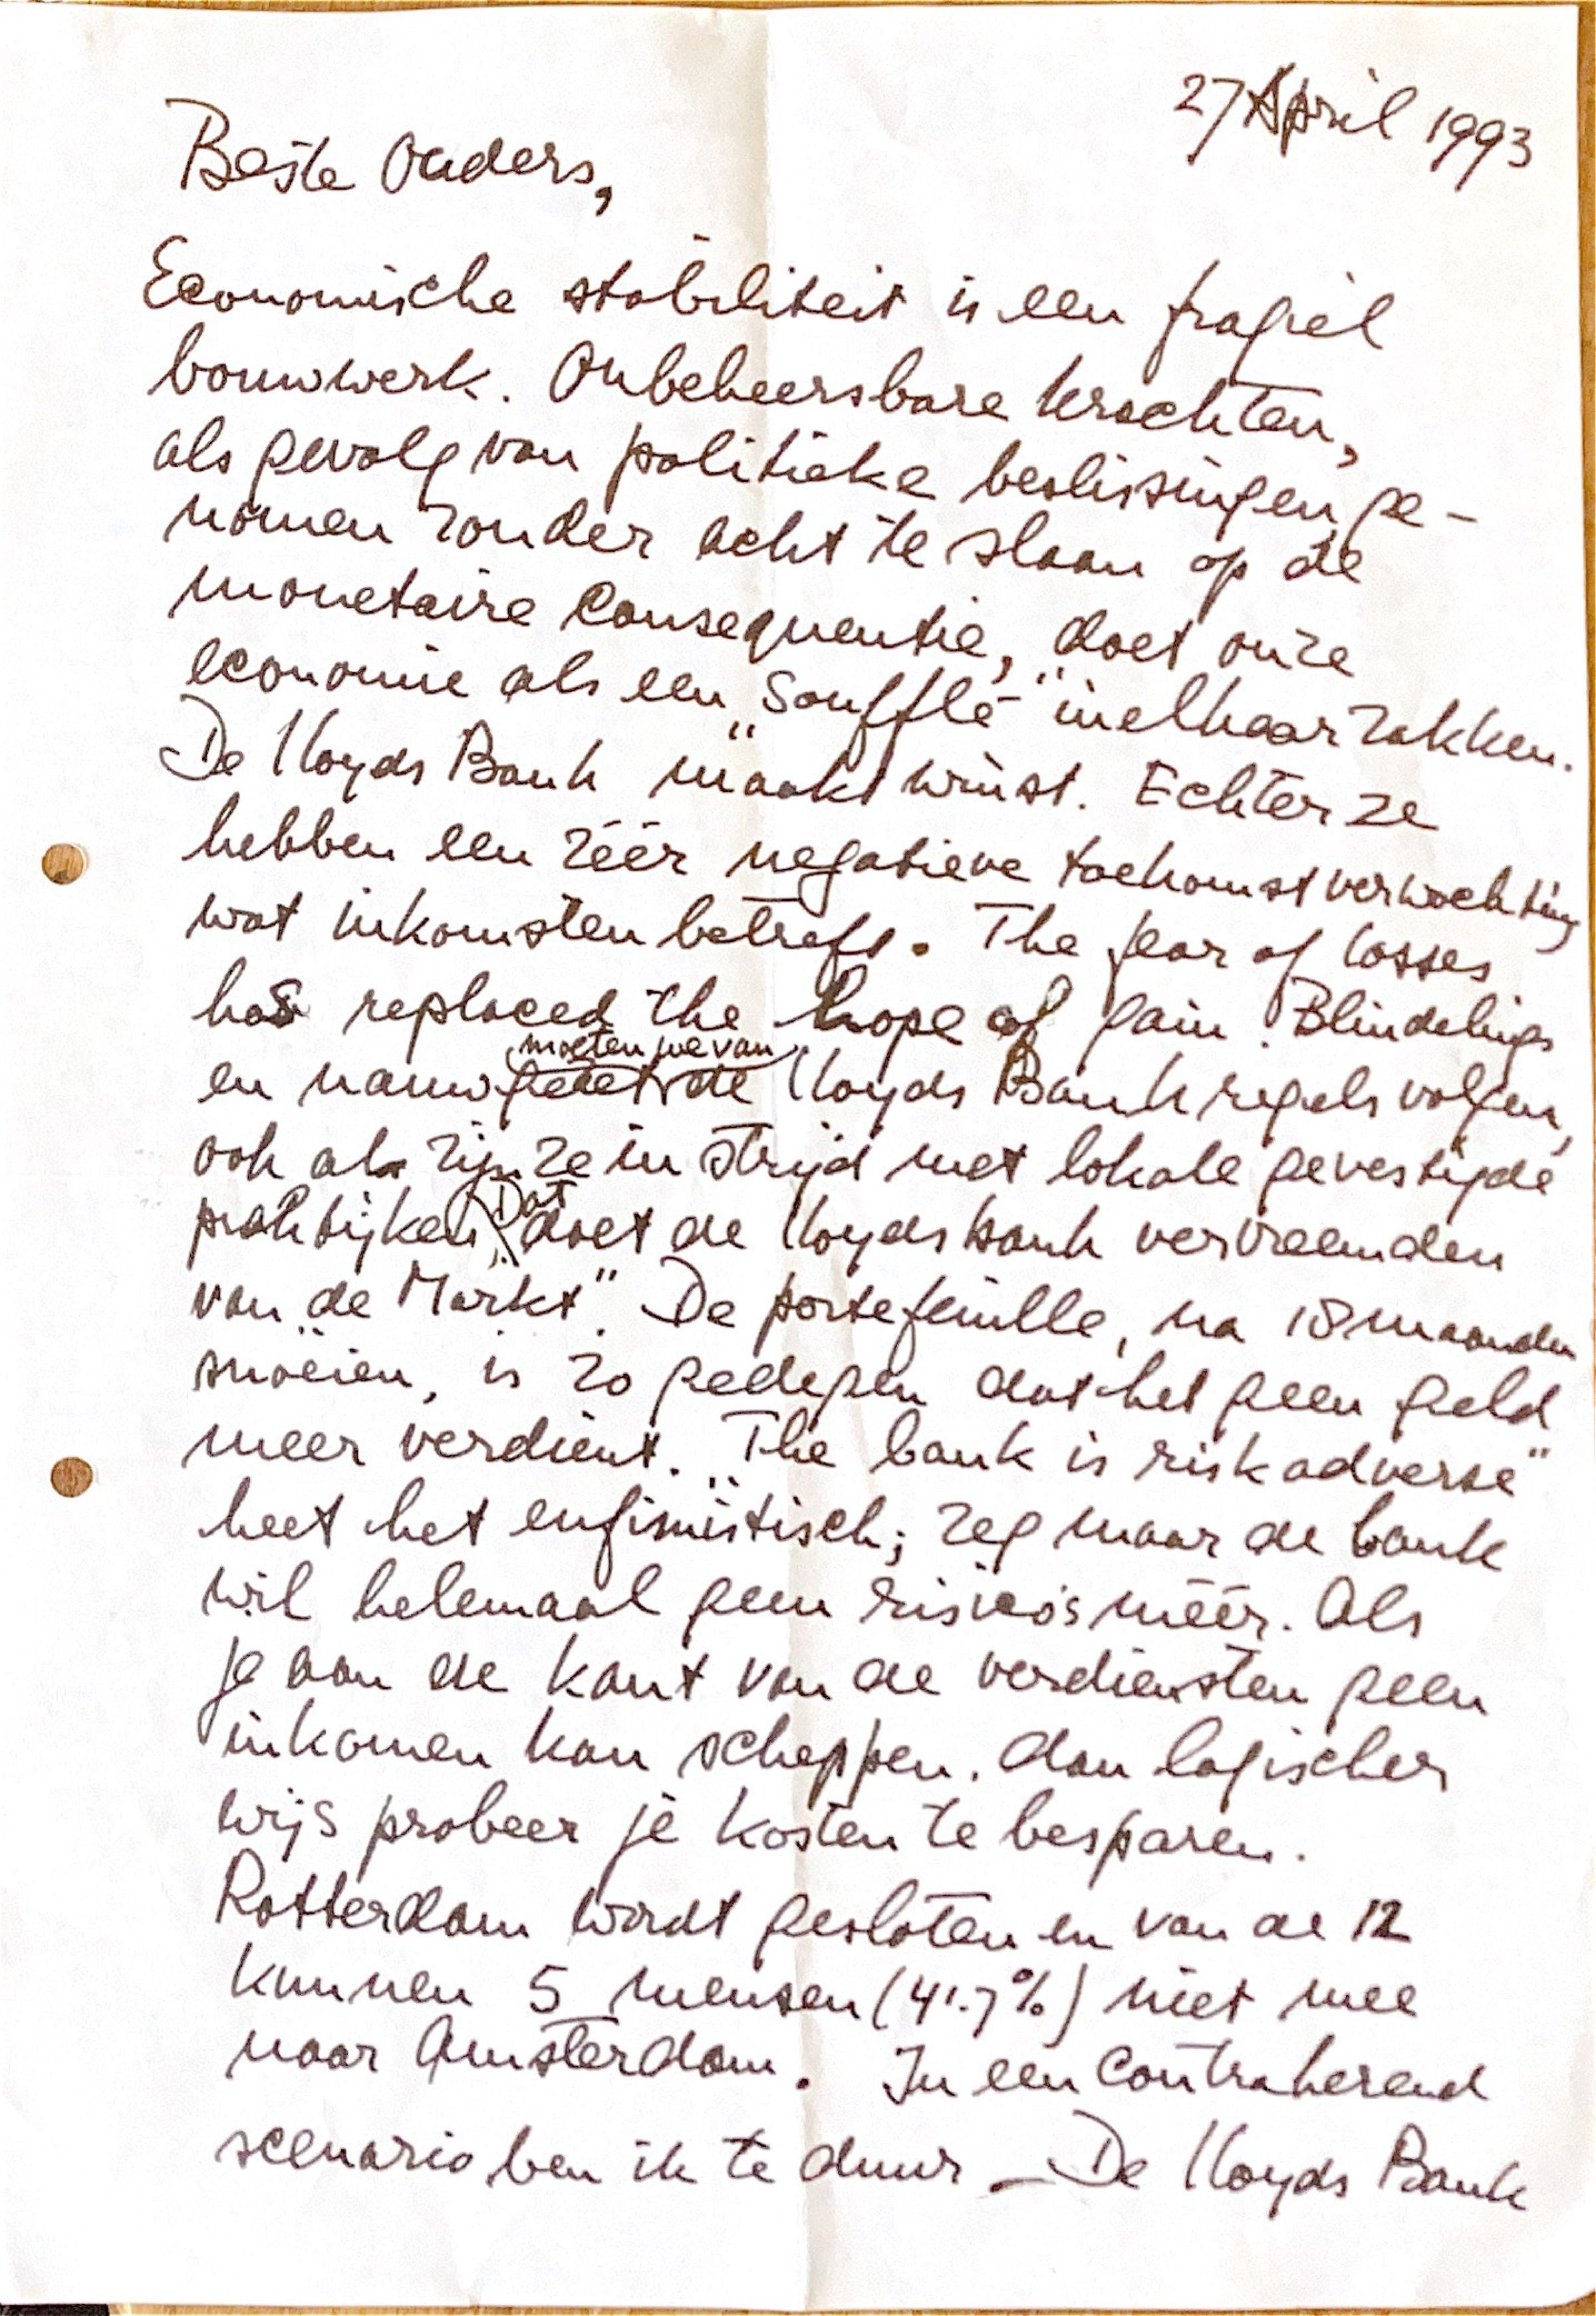 27 April 1993
Beste Ouders,
Economische stabiliteit is een fragiel
bouwwerk. Onbeheersbare krachten,
als gevolg van politieke beslissingen, ge-
nomen zonder acht te slaan op de
monetaire Consequentie, doet onze
economie als een "Soufflé" inelkaar zakken.
De Lloyds Bank maakt winst. Echter ze
hebben een zéér negatieve toekomstverwachting
wat inkomsten betreft. The fear of losses
has replaced the hope of gain. Blindelings
moeten we van
en nauwgezet de Lloyds Bank regels volgen,
ook al zijn ze in strijd met lokale gevestigde
praktijken. Dat doet de Lloyds bank vervreemden
van "de Markt". De portefeuille, na 18 maanden
snoeien, is zo gedegen dat het geen geld
meer verdient. "The bank is risk adverse"
heet het eufimistisch; zeg maar de bank
wil helemaal geen risico's méér. Als
je aan de kant van de verdiensten geen
inkomen kan scheppen, dan logischer
wijs probeer je kosten te besparen.
Rotterdam wordt gesloten en van de 12
kunnen 5 mensen (41.7%) niet mee
naar Amsterdam. In een Contraherend
scenario ben ik te duur — De Lloyds Bank